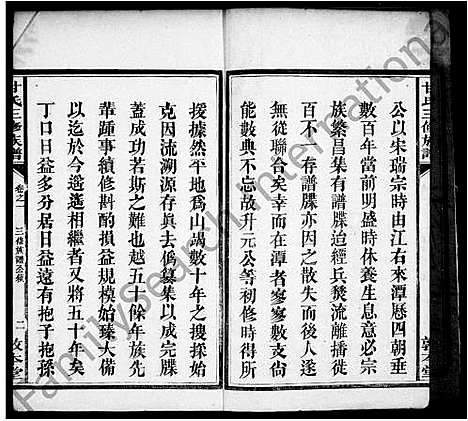 甘氏三修族譜
敦本堂
公以宋瑞宗時由江右來潭歷四朝垂
數百年當前明盛時休養生息意必宗
族繁昌集有譜牒迨經兵燹流離播徙
百不一存譜牒亦因之散失而後人遂
無從聯合矣幸而在潭者寥寥數支尚
能數典不忘故升元公等初修時得所
援據然平地為山竭數十年之搜採始
克因流溯源存眞去偽纂集以成完牒
蓋成功若斯之難也越五十餘年族先
輩踵事續修斟酌損益規模始臻大備
以迄於今遞迤相繼者又將五十年矣
丁口日益多分居日益遠有抱子抱孫
甘氏三修族譜
卷之一
三修族譜公叙
二
敦本堂
FamilySearch International